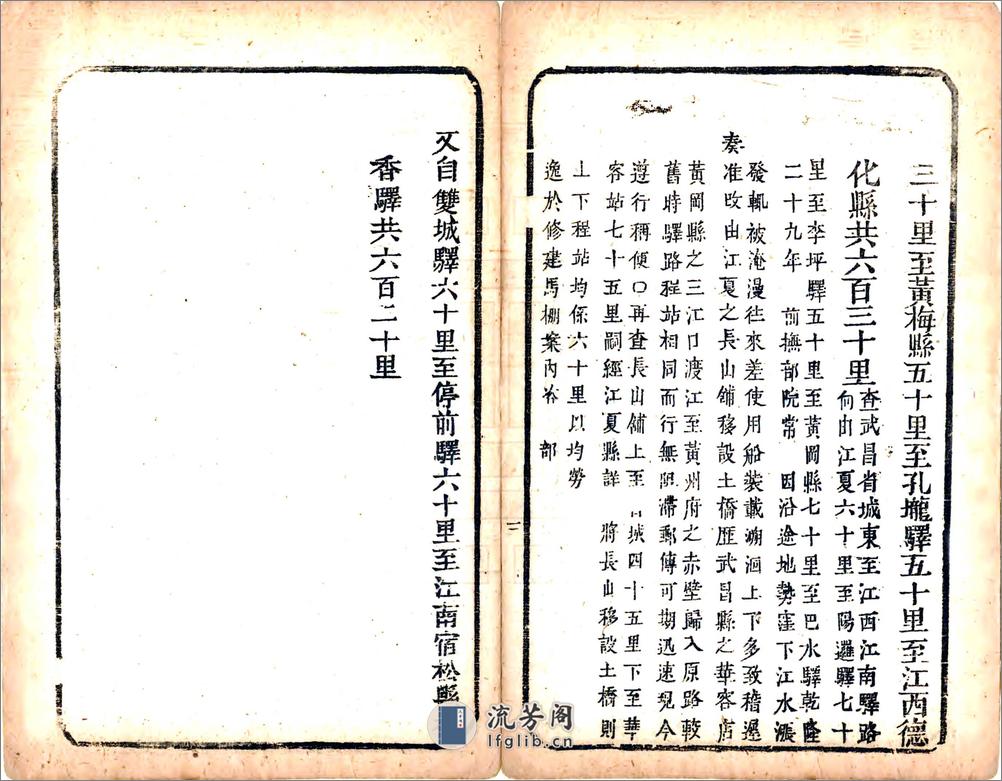 三十里至黃梅縣五十里至孔壠驛五十里至江西德
化縣共六百三十里
查武昌省城東至江西江南驛路
向由江夏六十里至陽邏驛七十
里至李坪驛五十里至黃岡縣七十里至巴水驛乾隆
二十九年 前撫部院常 因沿途地勢窪下江水漲
發輒被淹漫往來差使用船裝載溯洄上下多致稽遲
奏
准改由江夏之長山舖移設土橋歷武昌縣之華容店
黃岡縣之三江口渡江至黃州府之赤壁歸入原路較
舊時驛路程站相同而行無阻滯郵傳可期迅速現今
遵行稱便 再查長山舖上至 城四十五里下至華
容站七十五里嗣經江夏縣詳 將長山移設土橋則
上下程站均係六十里以均勞
逸於修建馬棚案內咨 部
二
又自雙城驛六十里至停前驛六十里至江南宿松縣
香驛共六百二十里
流芳阁
lfglib.cn